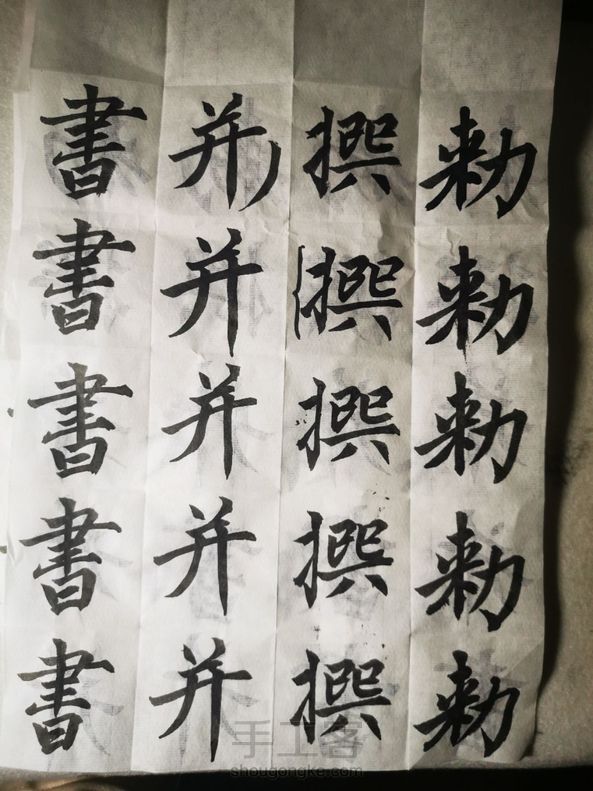 勅勅勅勅勅
撰撰撰撰撰
并并并并并
書書書書書
手工客
shougongke.com